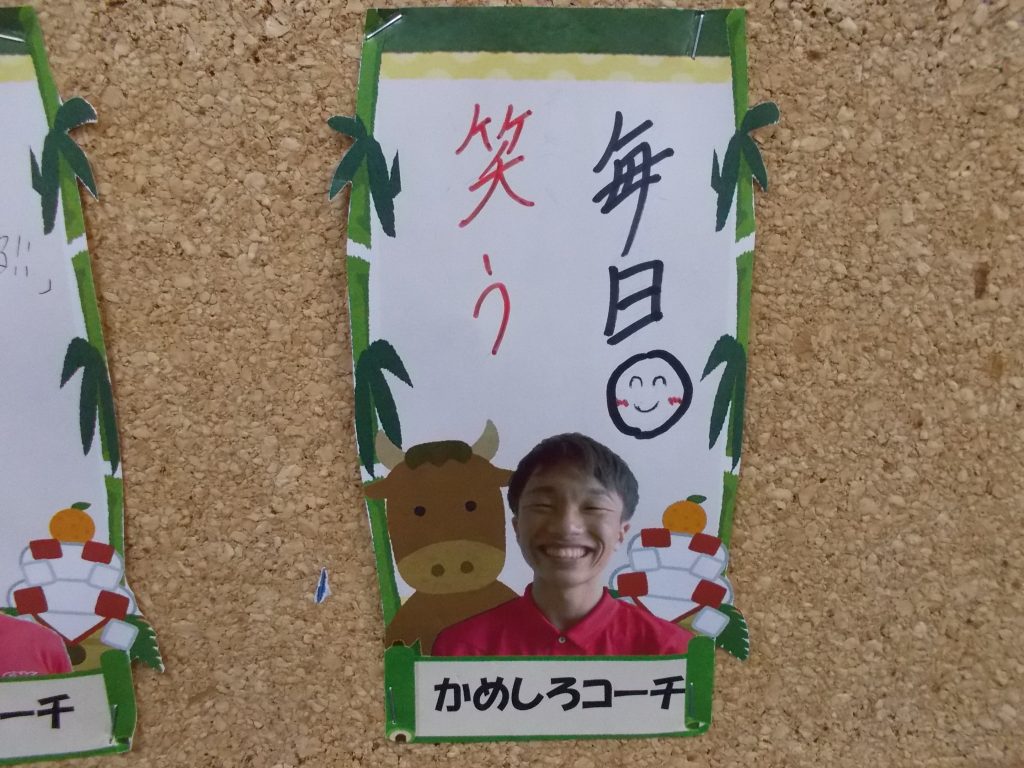 毎日
笑う
かめしろコーチ
ーチ